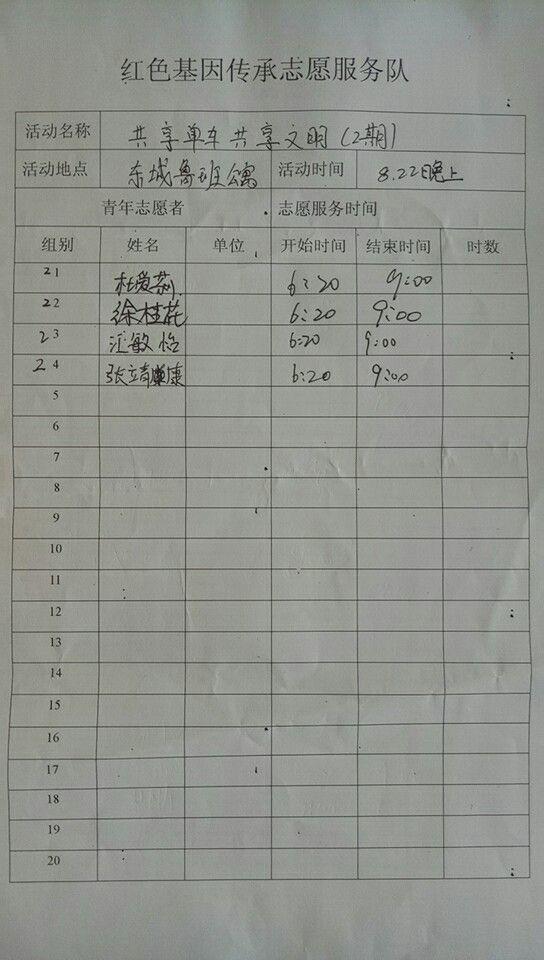 红色基因传承志愿服务队
活动名称 共享单车共享文明(2期)
活动地点 东城鲁班公寓 活动时间 8.22晚上
青年志愿者 志愿服务时间
组别 姓名 单位 开始时间 结束时间 时数
21 杜爱莉 6:20 9:00
22 徐桂花 6:20 9:00
23 汪敏怡 6:20 9:00
24 张立青 康 6:20 9:00
5
6
7
8
9
10
11
12
13
14
15
16
17
18
19
20